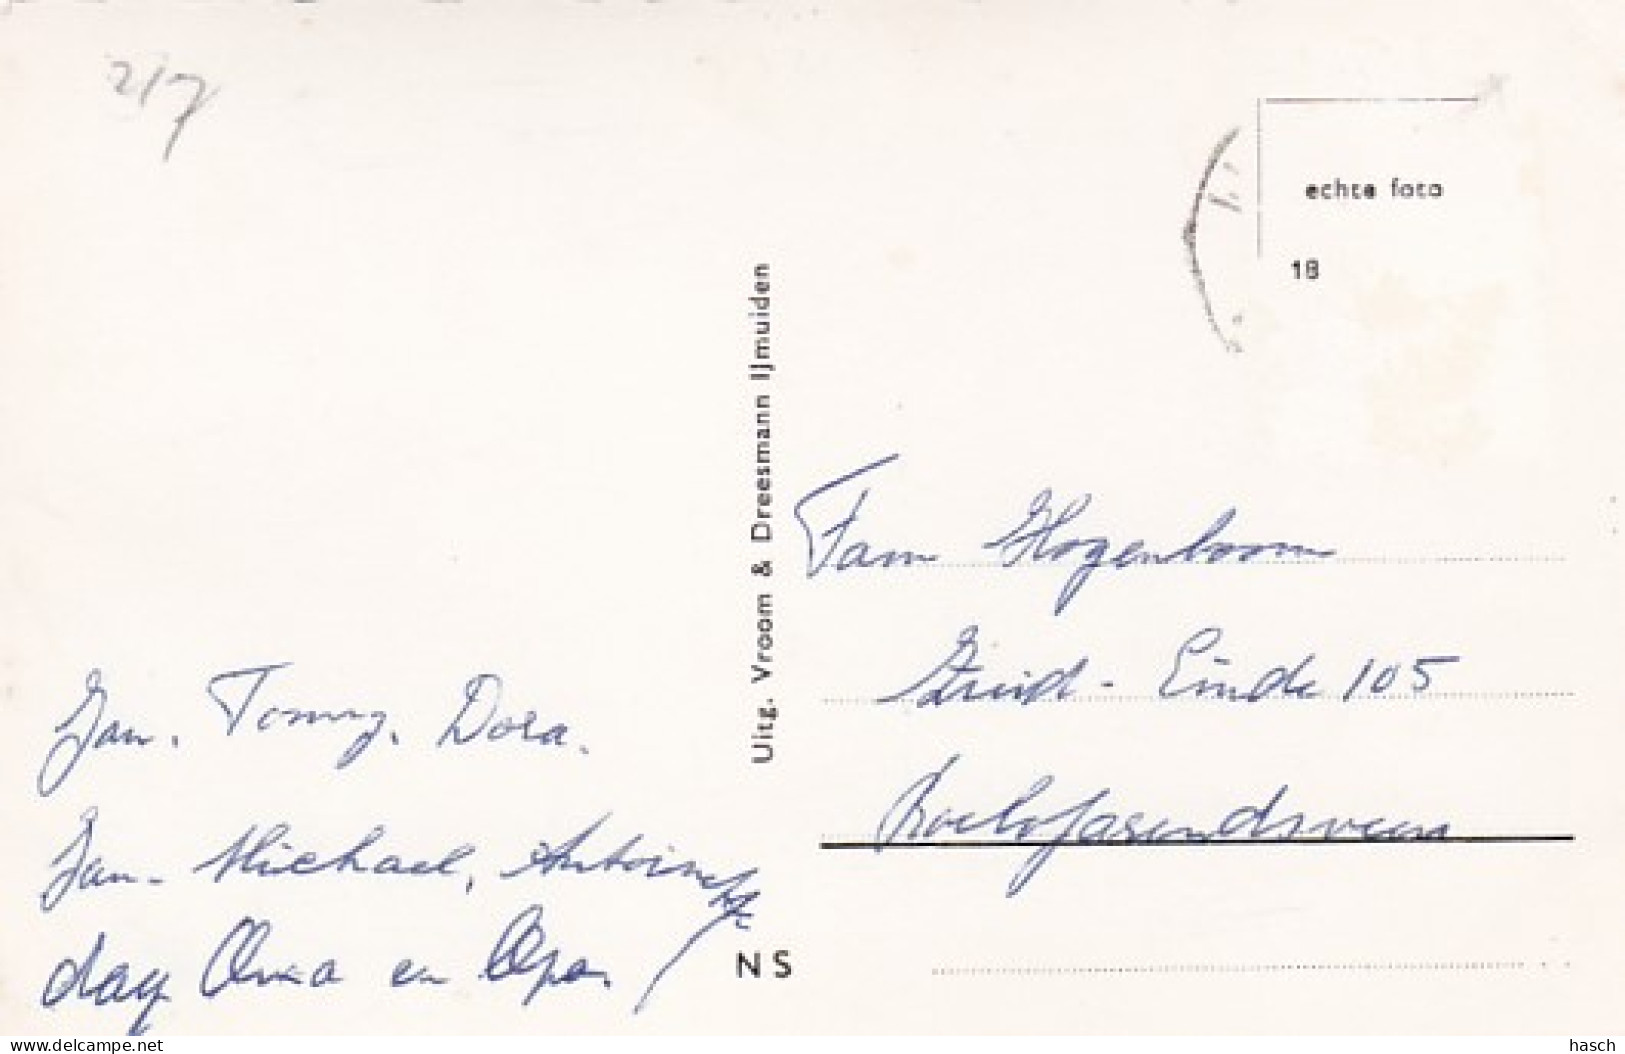 217
echte foto
18
Uitg. Vroom & Dreesmann IJmuiden
Fam Hogenboom
Zuid-Einde 105
Roelofarendsveen
Jan. Tonny. Dora.
Jan- Michael, Antoinette
dag Oma en Opa.
NS
www.delcampe.net
hasch